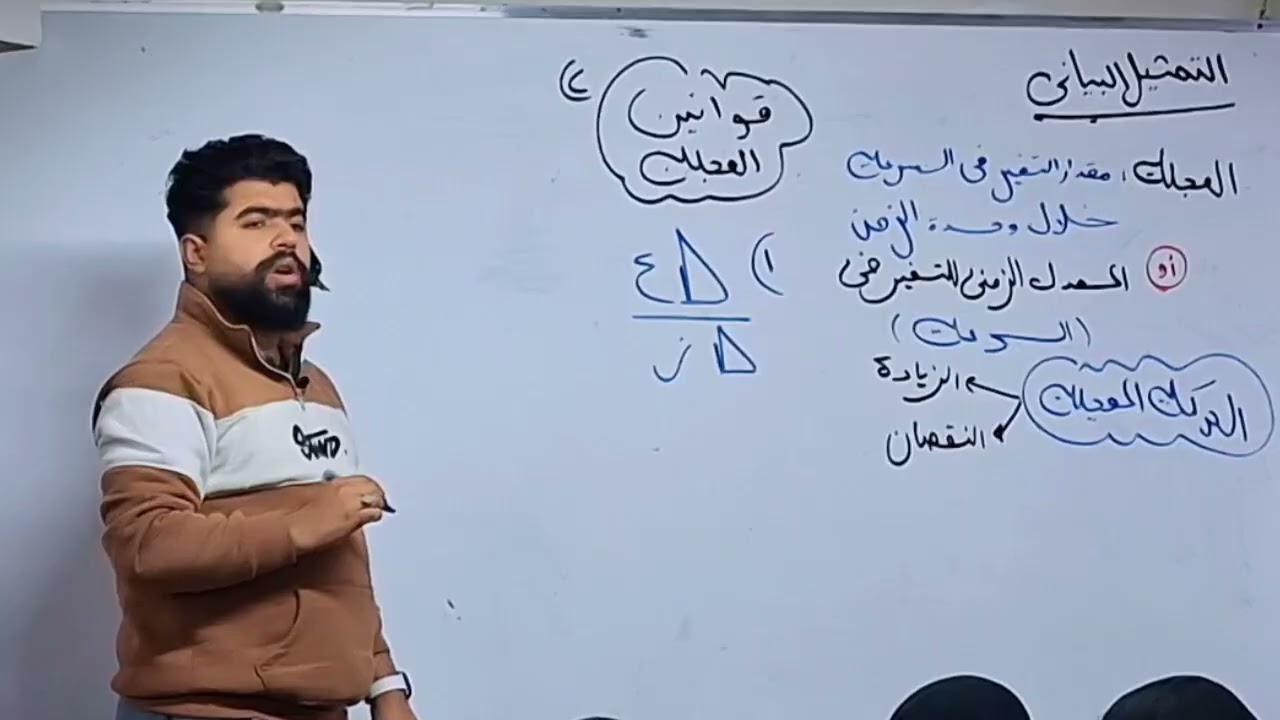 التمثيل البياني
العجلة: مقدار التغير في السرعة
خلال وحدة الزمن
أو المعدل الزمني للتغير في
(السرعة)
الحركة المعجلة
الزيادة
النقصان
قوانين
العجلة
١)
Δع
Δز
٢)